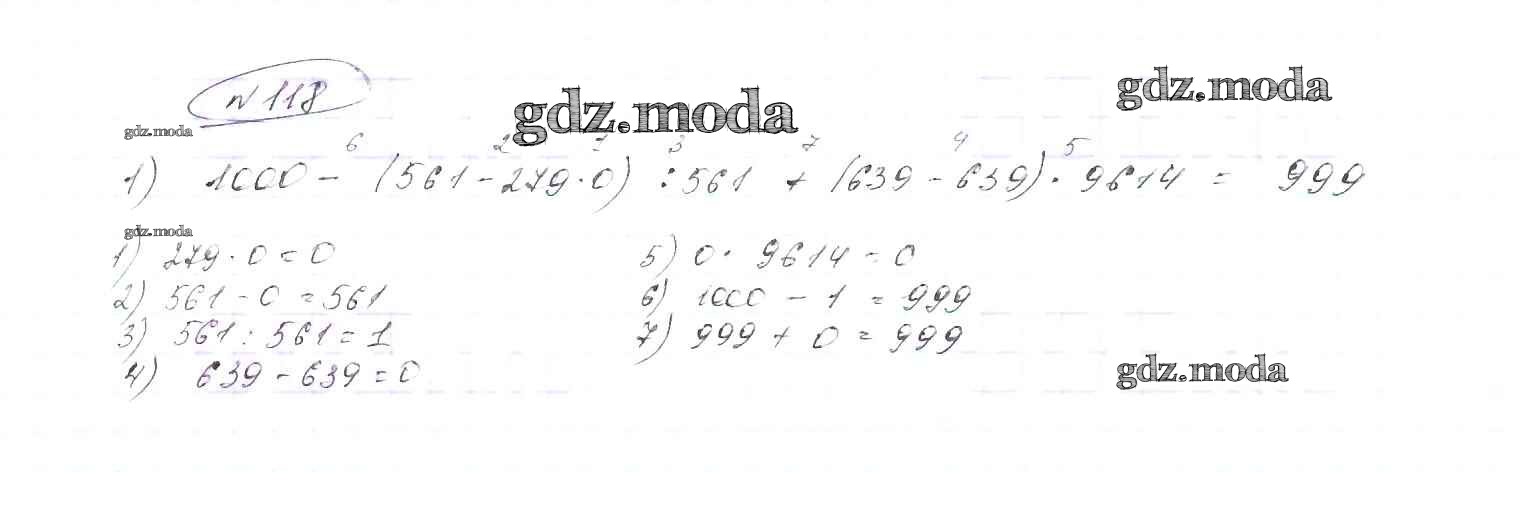 №118
gdz.moda
gdz.moda
gdz.moda
6 2 1 3 7 4 5
1) 1000 - (561 - 279 · 0) : 561 + (639 - 639) · 9614 = 999
gdz.moda
1) 279 · 0 = 0
2) 561 - 0 = 561
3) 561 : 561 = 1
4) 639 - 639 = 0
5) 0 · 9614 = 0
6) 1000 - 1 = 999
7) 999 + 0 = 999
gdz.moda